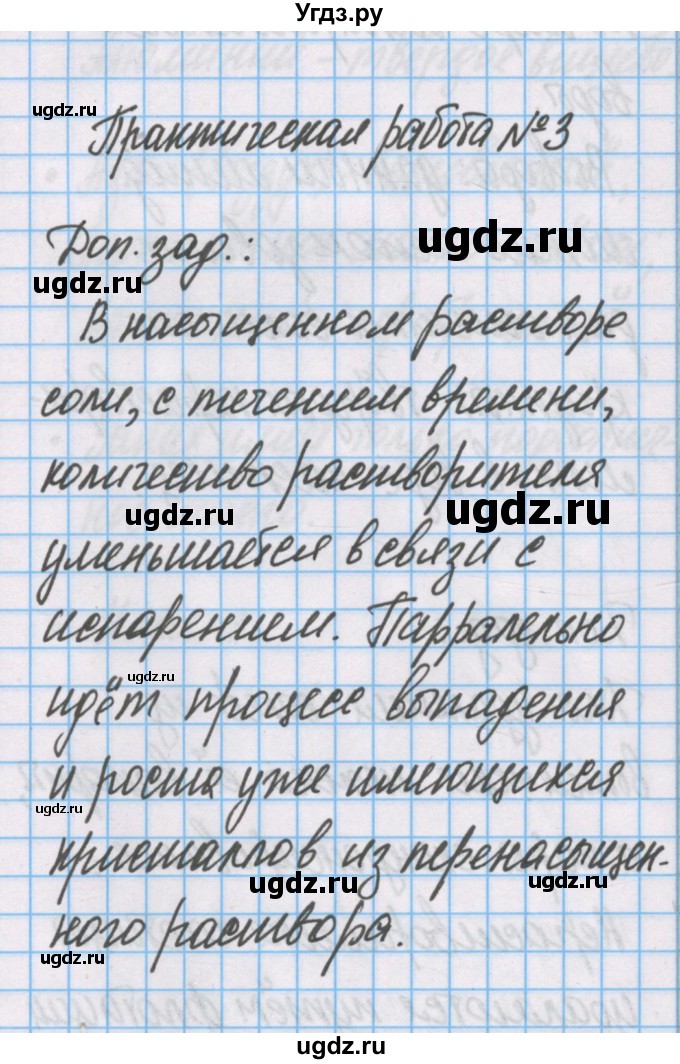 Угдз.ру
ugdz.ru
Практическая работа №3
ugdz.ru
Доп. зад.:
ugdz.ru
В насыщенном растворе
соли, с течением времени,
количество растворителя
ugdz.ru ugdz.ru
уменьшается в связи с
испарением. Парралельно
ugdz.ru
идёт процесс выпадения
и роста уже имеющихся
ugdz.ru
кристаллов из перенасыщен-
ugdz.ru ugdz.ru
ного раствора.
ugdz.ru
ugdz.ru